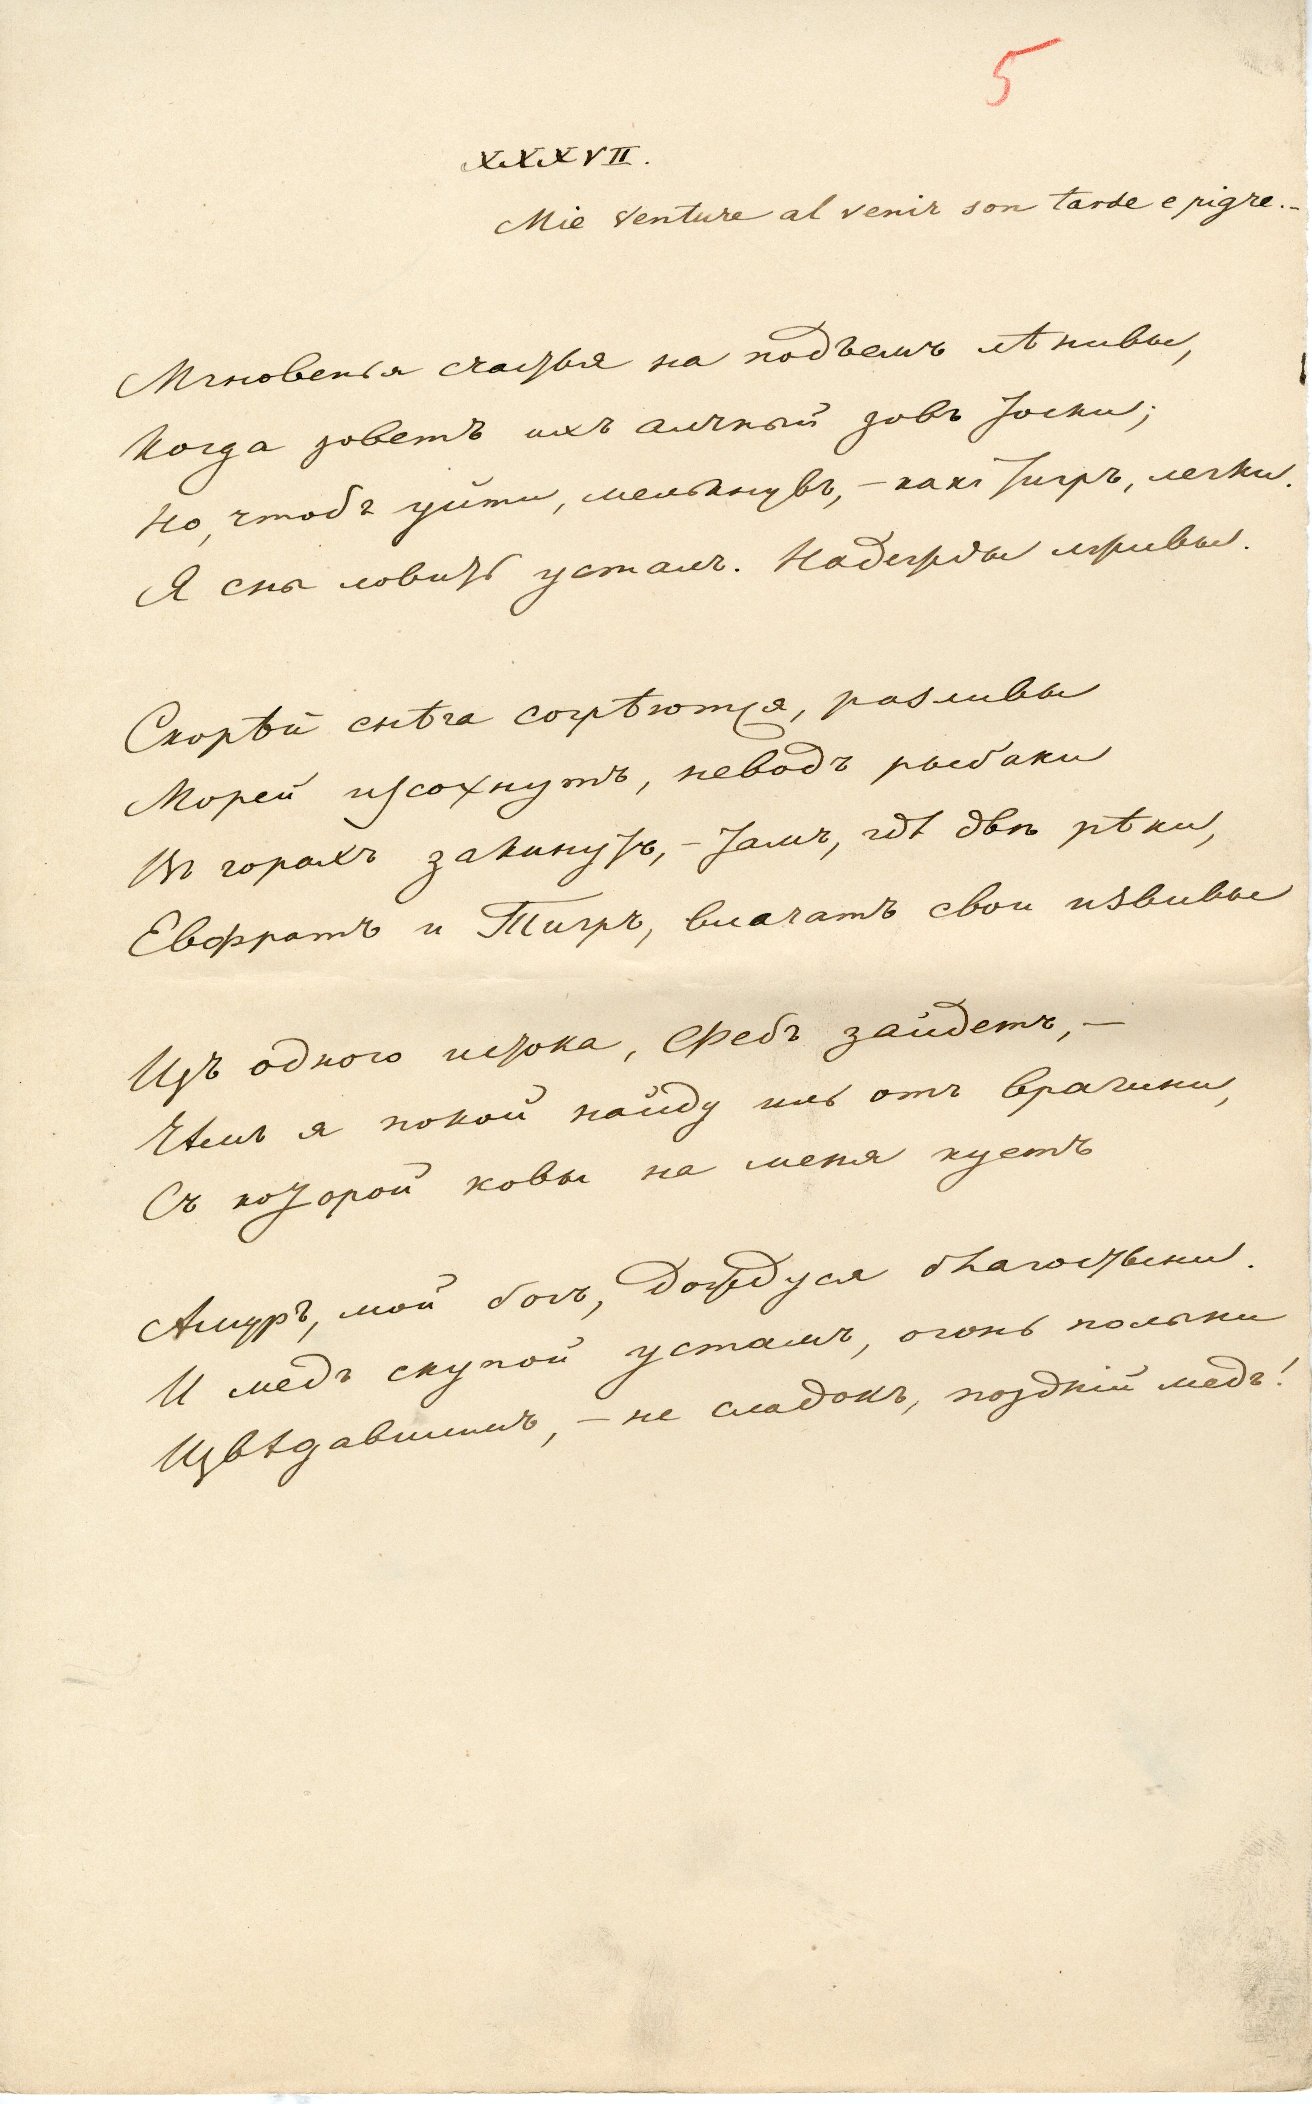 5
XXXVII.
Mie venture al venir son tarde e pigre.–
Мгновенья счастья на подъемъ лѣнивы,
Когда зоветъ ихъ алчный зовъ тоски;
Но, чтобъ уйти, мелькнувъ, – какъ тигръ, легки.
Я сны ловить усталъ. Надежды лживы.
Скорѣй снѣга согрѣются, разливы
Морей изсохнутъ, неводъ рыбаки
Въ горахъ закинутъ, – тамъ, гдѣ двѣ рѣки,
Евфратъ и Тигръ, влачатъ свои извивы
Изъ одного истока, Фебъ зайдетъ, –
Чѣмъ я покой найду иль отъ врагини,
Съ которой ковы на меня куетъ
Амуръ, мой богъ, дождуся благостыни.
И медъ скупой устамъ, огонь полыни
Извѣдавшимъ, – не сладокъ, поздній медъ!